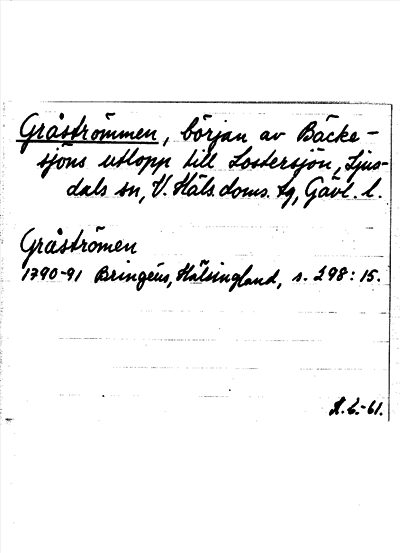 Gråströmmen, början av Bäcke-
sjöns utlopp till Lostersjön, Ljus-
dals sn, V. Häls. doms. tg, Gävl. l.
Gråströmen
1790-91 Bringéus, Hälsingland, s. 298:15.
-61.